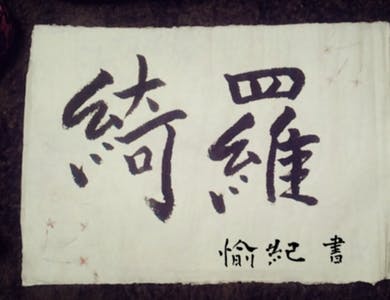 綺羅
愉紀 書